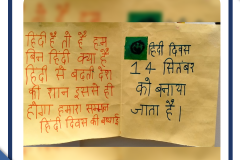 हिंदी हैं तो हैं हम
बिन हिंदी क्या है
हिंदी से बढ़ती देश
की शान इससे ही
होगा हमारा सम्मान
हिंदी दिवस की बधाई
हिंदी दिवस
14 सितंबर
को बनाया
जाता हैं।